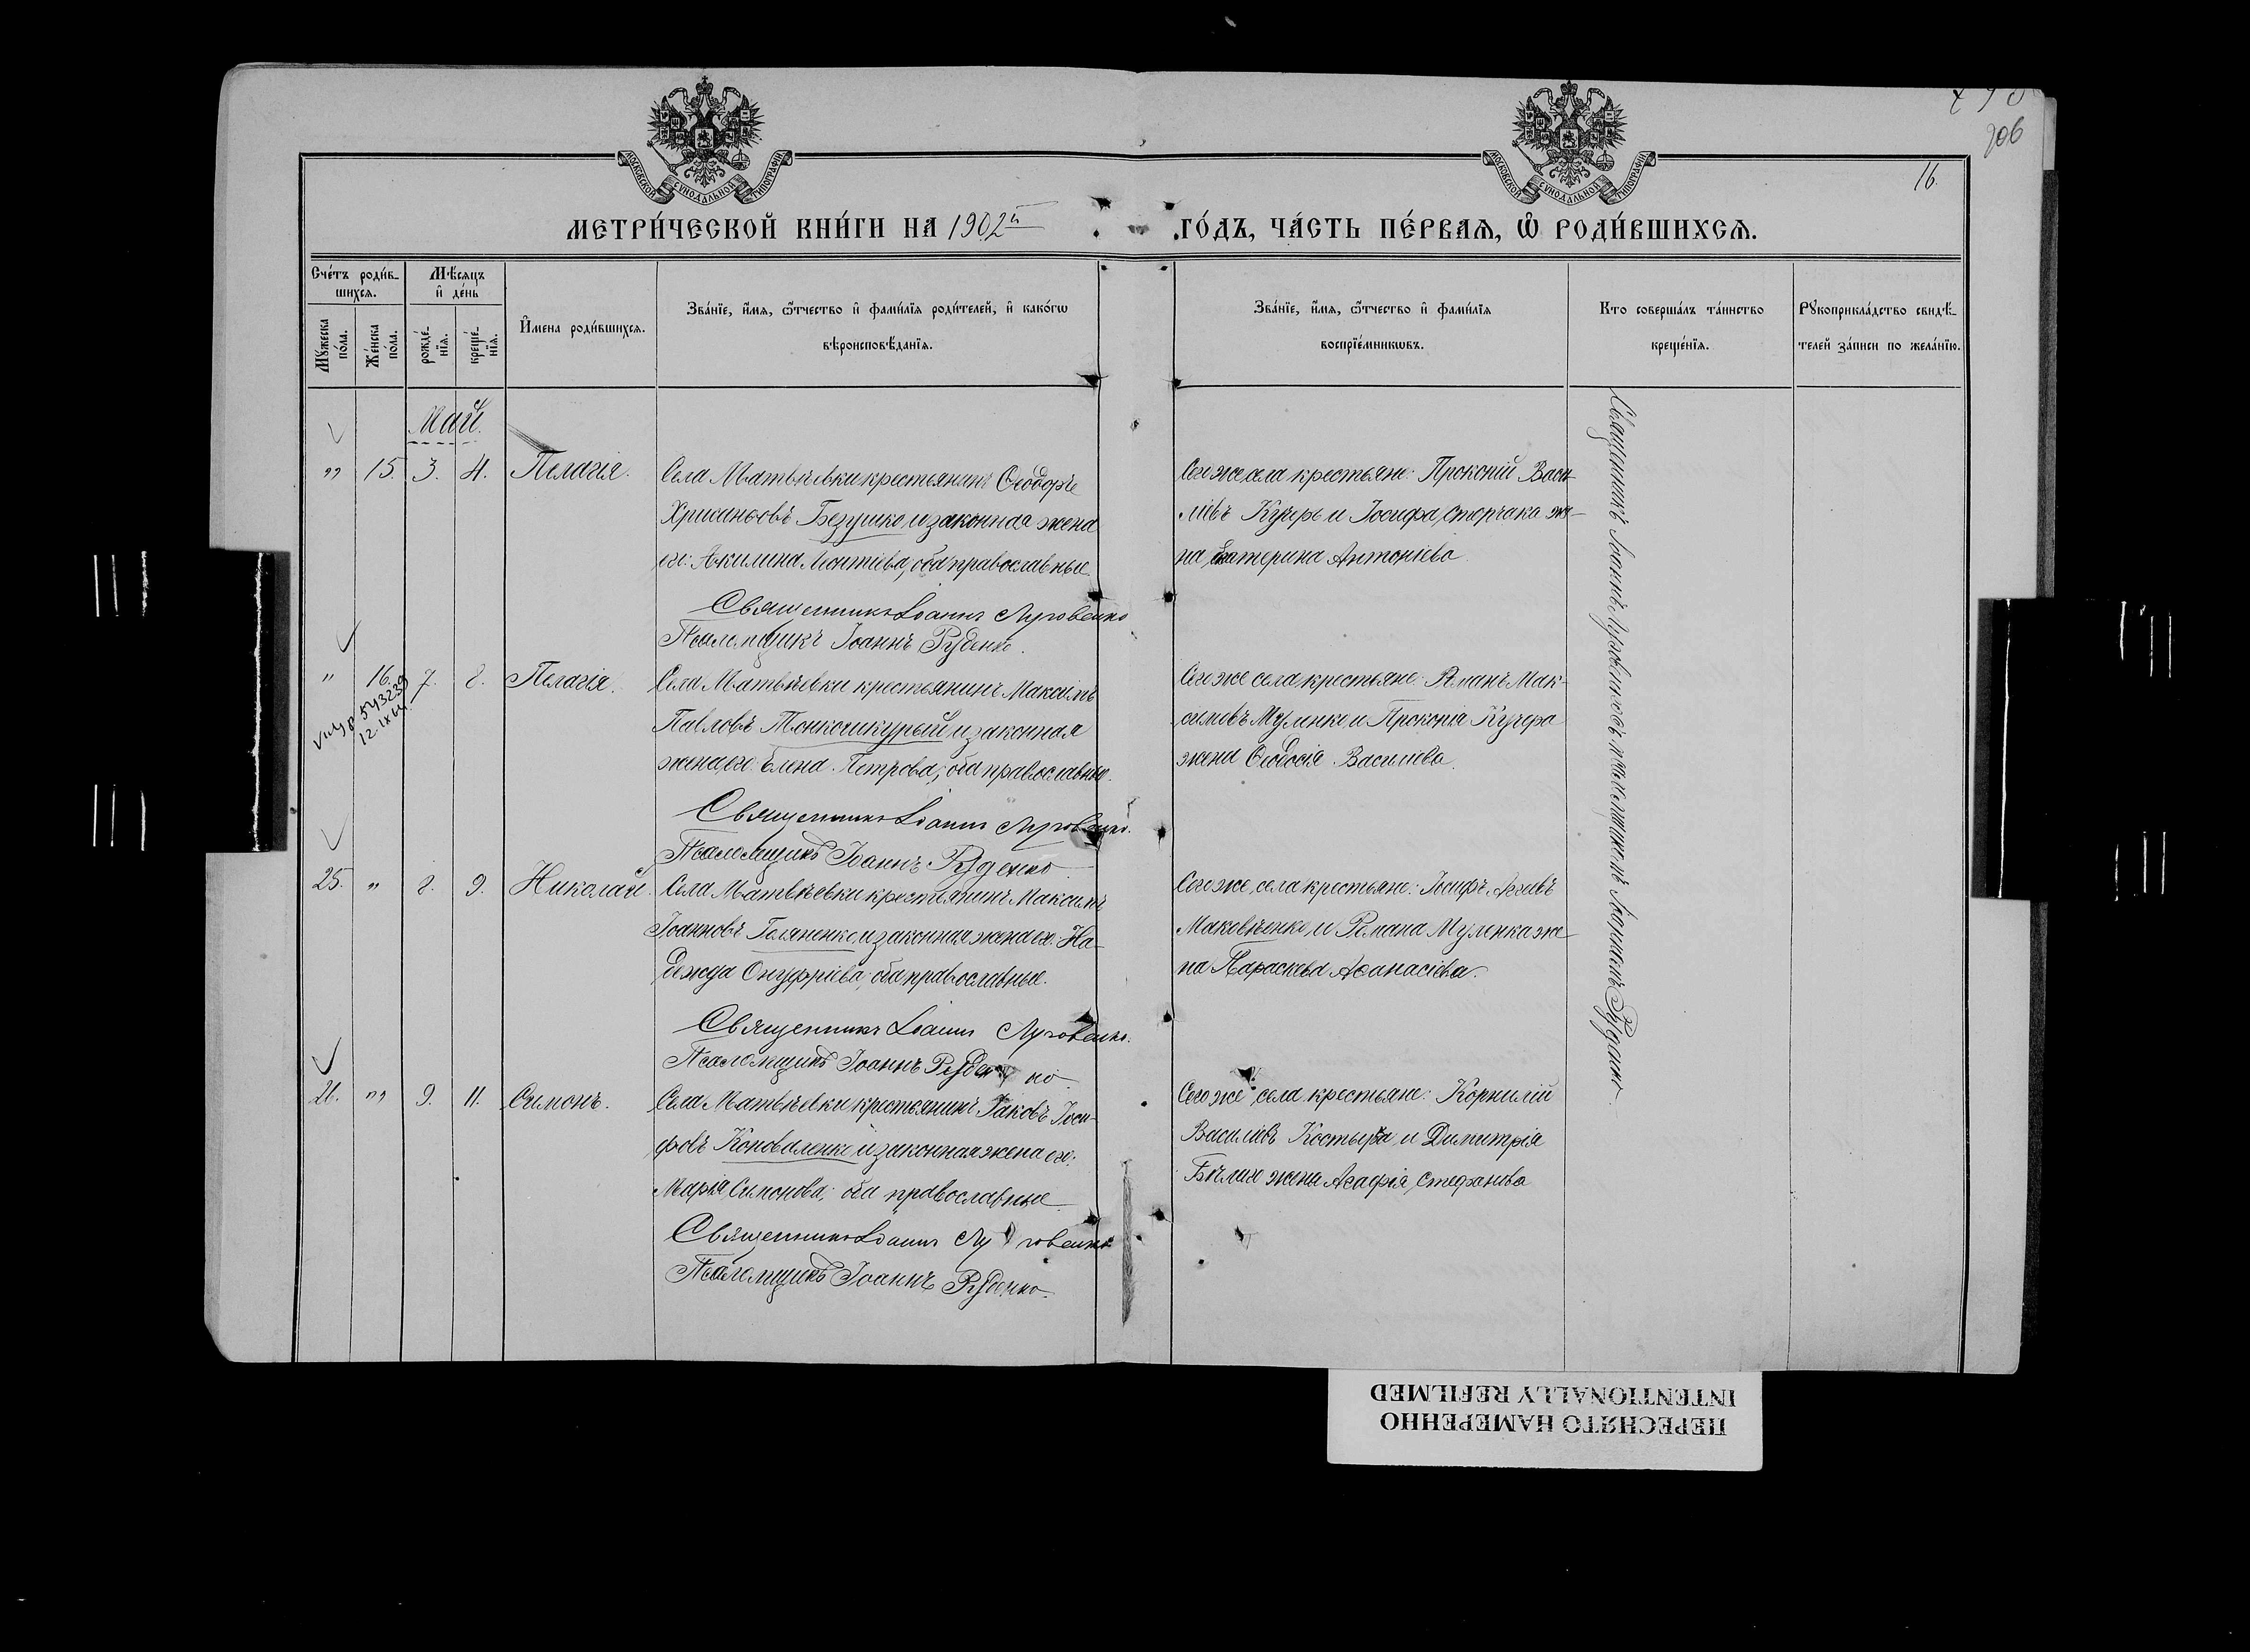 МОСКОВСКОЙ СУНОДАЛЬНОЙ ТИПОГРАФИИ
МОСКОВСКОЙ СУНОДАЛЬНОЙ ТИПОГРАФИИ
206
16.
МЕТРИ́ЧЕСКОЙ КНИ́ГИ НА 1902й
ГО́ДЪ, ЧА́СТЬ ПЕ́РВАѦ, Ѡ҆ РОДИ́ВШИХСѦ.
Сче́тъ роди́в-
шихсѧ.
Мꙋ́жеска по́ла.
Же́нска по́ла.
Мѣ́сѧцъ
и҆ де́нь
рожде́-
нїѧ.
креще́-
нїѧ.
И҆мена роди́вшихсѧ.
Зва́нїе, и҆́мѧ, ѻ҆́тчество и҆ фами́лїѧ роди́телей, и҆ како́гѡ
вѣроисповѣ́данїѧ.
Зва́нїе, и҆́мѧ, ѻ҆́тчество и҆ фами́лїѧ
воспрїе́мникѡвъ.
Кто соверша́лъ та́инство
креще́нїѧ.
Рꙋкоприкла́дство свидѣ́-
телей за́писи по жела́нїю.
Май.
„ 15. 3. 4. Пелагія.
Села Матвѣевки крестьянинъ Ѳеодоръ
Хрисанѳовъ Безушко и законная жена
его: Акилина Леонтіева, оба православные.
Священникъ Іоаннъ Луговенко
Псаломщикъ Іоаннъ Руденко.
Сего же села крестьяне: Прокопій Васи-
ліевъ Кучеръ и Іосифа Сторчака же-
на Екатерина Антоніева.
„ 16. 7. 8. Пелагія.
543239
12.IX 64.
Села Матвѣевки крестьянинъ Максимъ
Павловъ Тонкошкурый и законная
жена его: Елена Петрова; оба православные.
Священникъ Іоаннъ Луговенко.
Псаломщикъ Іоаннъ Руденко.
Сего же села крестьяне: Романъ Мак-
симовъ Муленко и Прокопія Кучера
жена Ѳеодосія Василіева.
25. „ 8. 9. Николай.
Села Матвѣевки крестьянинъ Максимъ
Іоанновъ Голяненко и законная жена его: На-
дежда Онуфріева; оба православные.
Священникъ Іоаннъ Луговенко.
Псаломщикъ Іоаннъ Руденко.
Сего же села крестьяне: Іосифъ Агеевъ
Маковѣенко и Романа Муленка же-
на Параскева Аѳанасіева.
26. „ 9. 11. Симонъ.
Села Матвѣевки крестьянинъ Іаковъ Іоси-
фовъ Коноваленко и законная жена его:
Марія Симонова; оба православные.
Священникъ Іоаннъ Луговенко
Псаломщикъ Іоаннъ Руденко.
Сего же села крестьяне: Корнилій
Василіевъ Костыря и Димитрія
Бѣлаго жена Агафія Стефанова
Священникъ Іоаннъ Луговенко съ псаломщикомъ Іоанномъ Руденко.
ПЕРЕСНЯТО НАМЕРЕННО
INTENTIONALLY REFILMED